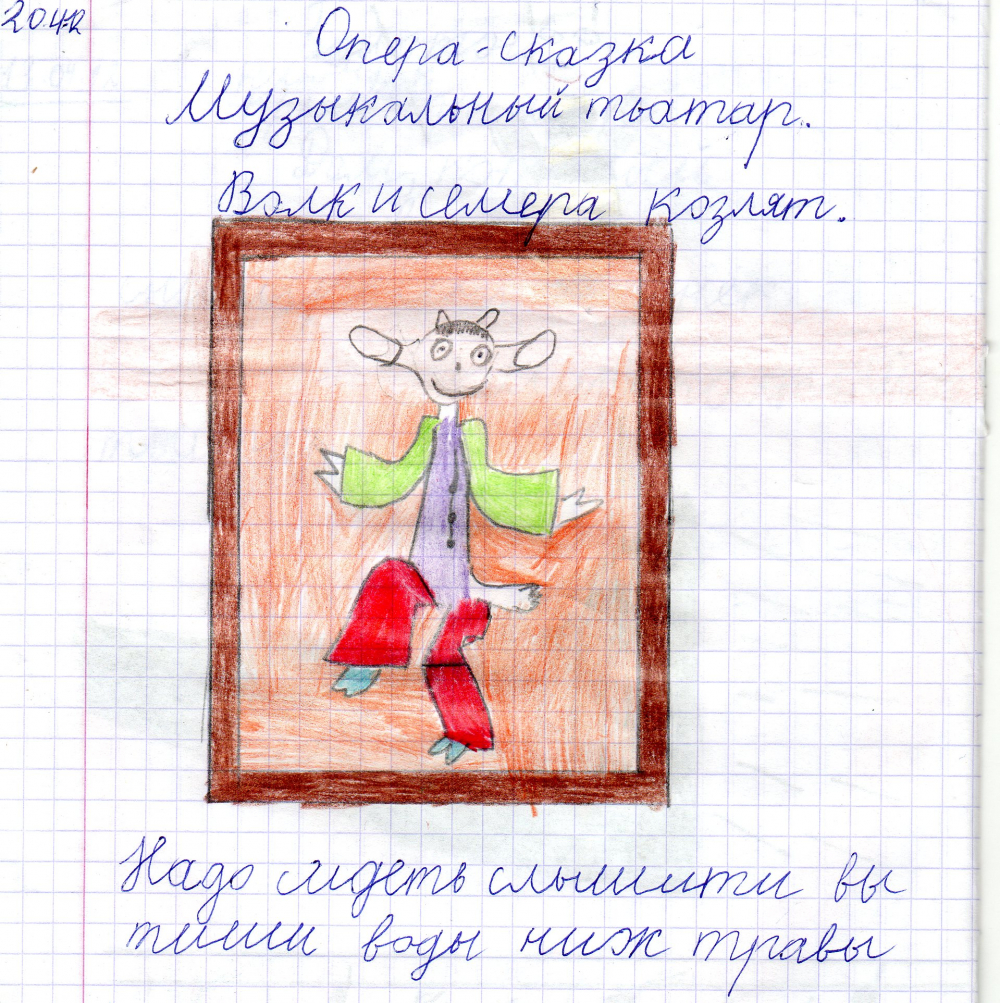 Опера-сказка
Музыкальный тьатар.
Волк и семера козлят.
Надо сидеть слышити вы
тиши воды ниж травы